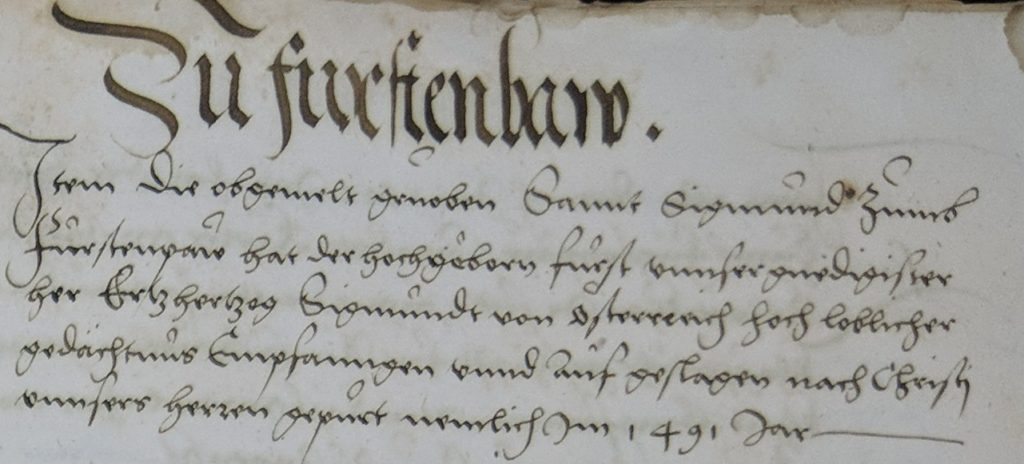 Zu furstenbaw.
Item die obgemelt gruoben Sannt Sigmund Zumb
Furstenpaw hat der hochgeborn furst vnnser gnedigister
her Ertzhertzog Sigmundt von Osterreich hoch loblicher
gedachtnus Empfanngen vnnd Auf geslagen nach Christj
vnnsers herren gepurt nemlich Im 1491 Jar